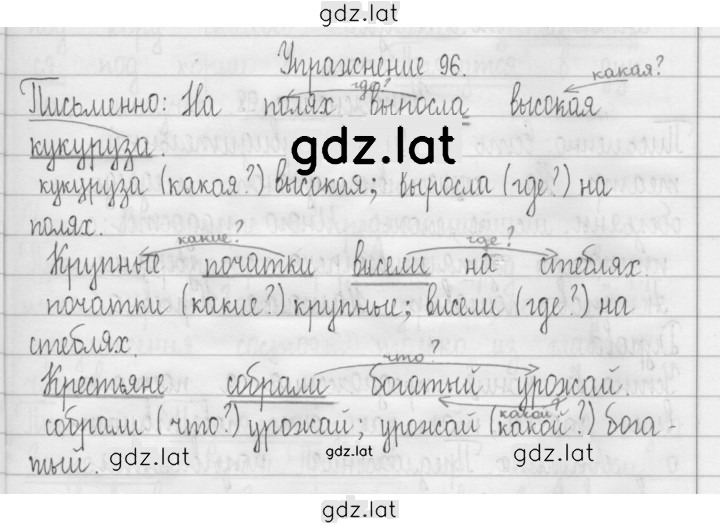 gdz.lat
Упражнение 96.
где?
какая?
Письменно: На полях выросла высокая
кукуруза.
gdz.lat
кукуруза (какая?) высокая; выросла (где?) на
полях.
какие?
где?
Крупные початки висели на стеблях.
початки (какие?) крупные; висели (где?) на
стеблях.
что?
Крестьяне собрали богатый урожай.
какой?
собрали (что?) урожай; урожай (какой?) бога-
тый.
gdz.lat
gdz.lat
gdz.lat
gdz.lat